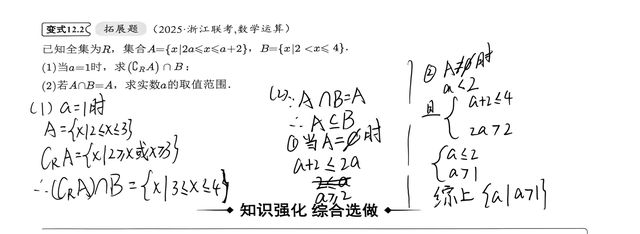 变式12.2 拓展题 (2025·浙江联考,数学运算)
已知全集为R，集合A={x|2a≤x≤a+2}，B={x|2<x≤4}.
(1)当a=1时，求(∁RA)∩B；
(2)若A∩B=A，求实数a的取值范围.
(1) a=1时
A={x|2≤x≤3}
CRA={x|2≥x或x≥3}
∴(CRA)∩B={x|3≤x≤4}
(2)∵A∩B=A
∴A⊆B
①当A=∅时
a+2≤2a
a≥2
②A≠∅时
a<2
且{a+2≤4
2a>2
{a≤2
a>1
综上{a|a>1}
知识强化 综合选做